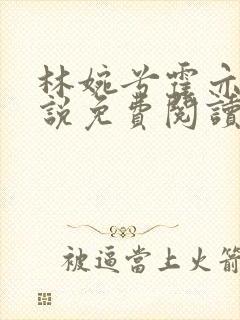 林婉兮霍亦
說免費閱讀
被逼當上火箭